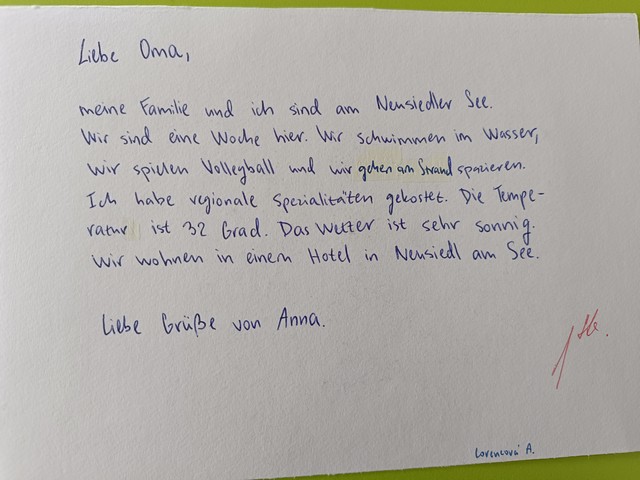 Liebe Oma,
meine Familie und ich sind am Neusiedler See.
Wir sind eine Woche hier. Wir schwimmen im Wasser,
Wir spielen Volleyball und wir gehen am Strand spazieren.
Ich habe regionale Spezialitäten gekostet. Die Tempe-
ratur ist 32 Grad. Das Wetter ist sehr sonnig.
Wir wohnen in einem Hotel in Neusiedl am See.
Liebe Grüße von Anna.
Lorencová A.